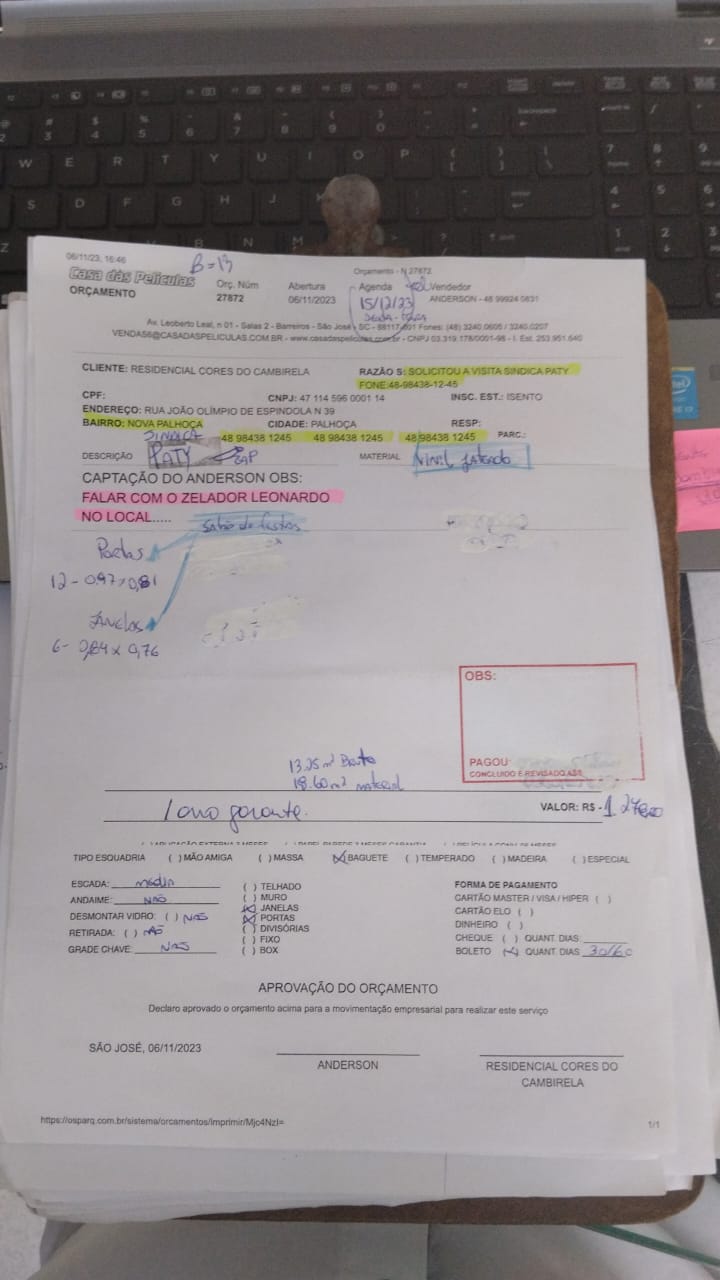 06/11/23, 16:46
Orçamento - N 27872
B=13
Casa das Películas
ORÇAMENTO
Orç. Núm
27872
Abertura
06/11/2023
Agenda
15/12/23
Vendedor
ANDERSON - 48 99924 0831
Av. Leoberto Leal, n 01 - Salas 2 - Barreiros - São José - SC - 88117-001 Fones: (48) 3240.0605 / 3240.0207
VENDAS6@CASADASPELICULAS.COM.BR - www.casadaspeliculas.com.br - CNPJ 03.319.178/0001-98 - I. Est. 253.951.640
CLIENTE: RESIDENCIAL CORES DO CAMBIRELA
RAZÃO S: SOLICITOU A VISITA SINDICA PATY
FONE:48-98438-12-45
CPF:
CNPJ: 47 114 596 0001 14
INSC. EST.: ISENTO
ENDEREÇO: RUA JOÃO OLÍMPIO DE ESPINDOLA N 39
BAIRRO: NOVA PALHOÇA
CIDADE: PALHOÇA
RESP:
SINDICA
48 98438 1245 48 98438 1245 48 98438 1245
PARC.:
DESCRIÇÃO
PATY
MATERIAL
Vinil Jateado
CAPTAÇÃO DO ANDERSON OBS:
FALAR COM O ZELADOR LEONARDO
NO LOCAL.....
Salão de festas
Portas
12 - 0,97 x 0,81
JANELAS
6 - 0,84 x 0,76
OBS:
PAGOU:
CONCLUIDO E REVISADO ASS
13.25 m² Bruto
18.60 m² material
1 ano garante.
VALOR: R$ -
TIPO ESQUADRIA ( ) MÃO AMIGA ( ) MASSA (X) BAGUETE ( ) TEMPERADO ( ) MADEIRA ( ) ESPECIAL
ESCADA: média
ANDAIME: NÃO
DESMONTAR VIDRO: ( ) NÃO
RETIRADA: ( ) NÃO
GRADE CHAVE: NÃO
( ) TELHADO
( ) MURO
(X) JANELAS
(X) PORTAS
( ) DIVISÓRIAS
( ) FIXO
( ) BOX
FORMA DE PAGAMENTO
CARTÃO MASTER / VISA / HIPER ( )
CARTÃO ELO ( )
DINHEIRO ( )
CHEQUE ( ) QUANT. DIAS:
BOLETO (X) QUANT. DIAS 30/60
APROVAÇÃO DO ORÇAMENTO
Declaro aprovado o orçamento acima para a movimentação empresarial para realizar este serviço
SÃO JOSÉ, 06/11/2023
ANDERSON
RESIDENCIAL CORES DO
CAMBIRELA
https://osparq.com.br/sistema/orcamentos/imprimir/Mjc4NzI=
1/1